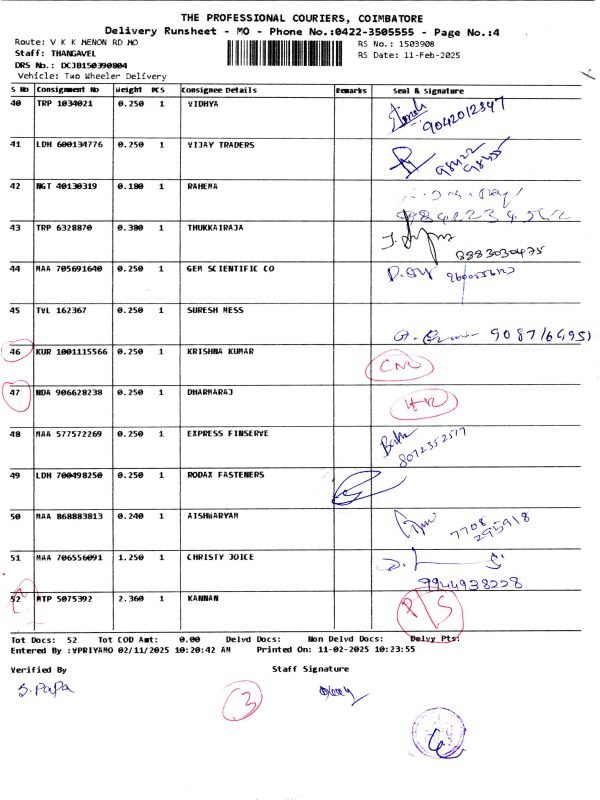 THE PROFESSIONAL COURIERS, COIMBATORE
Delivery Runsheet - MO - Phone No.:0422-3505555 - Page No.:4
Route: V K K MENON RD MO RS No.: 1503908
Staff: THANGAVEL RS Date: 11-Feb-2025
DRS No.: DCJB150390804
Vehicle: Two Wheeler Delivery
S No Consignment No Weight PCS Consignee Details Remarks Seal & Signature
40 TRP 1034021 0.250 1 VIDHYA
9042012347
41 LDH 600134776 0.250 1 VIJAY TRADERS
98422
98455
42 NGT 40130319 0.180 1 RAHEMA
98842234562
43 TRP 6328870 0.380 1 THUKKAIRAJA
8883030475
44 MAA 705691640 0.250 1 GEM SCIENTIFIC CO
45 TVL 162367 0.250 1 SURESH MESS
46 KUR 1001115566 0.250 1 KRISHNA KUMAR
47 NDA 906628238 0.250 1 DHARMARAJ
48 MAA 577572269 0.250 1 EXPRESS FINSERVE
8072352577
49 LDH 700498250 0.250 1 RODAX FASTENERS
50 MAA 868883813 0.240 1 AISHWARYAM
7708
295918
51 MAA 706556091 1.250 1 CHRISTY JOICE
7944938228
52 MTP 5075392 2.360 1 KANNAN P/S
Tot Docs: 52 Tot COD Amt: 0.00 Delvd Docs: Non Delvd Docs: Delvy Pts:
Entered By :VPRIYAMO 02/11/2025 10:20:42 AM Printed On: 11-02-2025 10:23:55
Verified By Staff Signature
S. PaPa
3